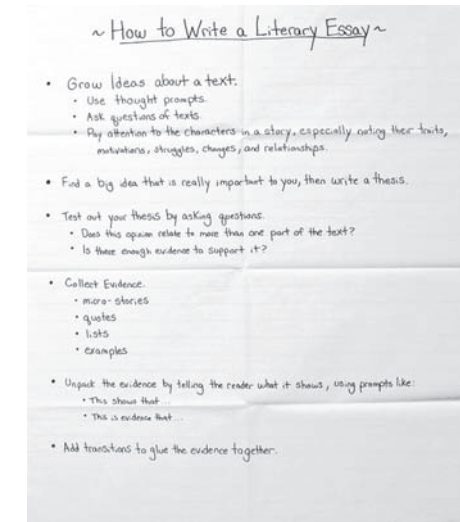 ~ How to Write a Literary Essay ~
• Grow Ideas about a text.
• Use thought prompts.
• Ask questions of texts
• Pay attention to the characters in a story, especially noting their traits,
motivations, struggles, changes, and relationships.
• Find a big idea that is really important to you, then write a thesis.
• Test out your thesis by asking questions.
• Does this opinion relate to more than one part of the text?
• Is there enough evidence to support it?
• Collect Evidence.
• micro-stories
• quotes
• lists
• examples
• Unpack the evidence by telling the reader what it shows, using prompts like:
• This shows that...
• This is evidence that...
• Add transitions to glue the evidence together.